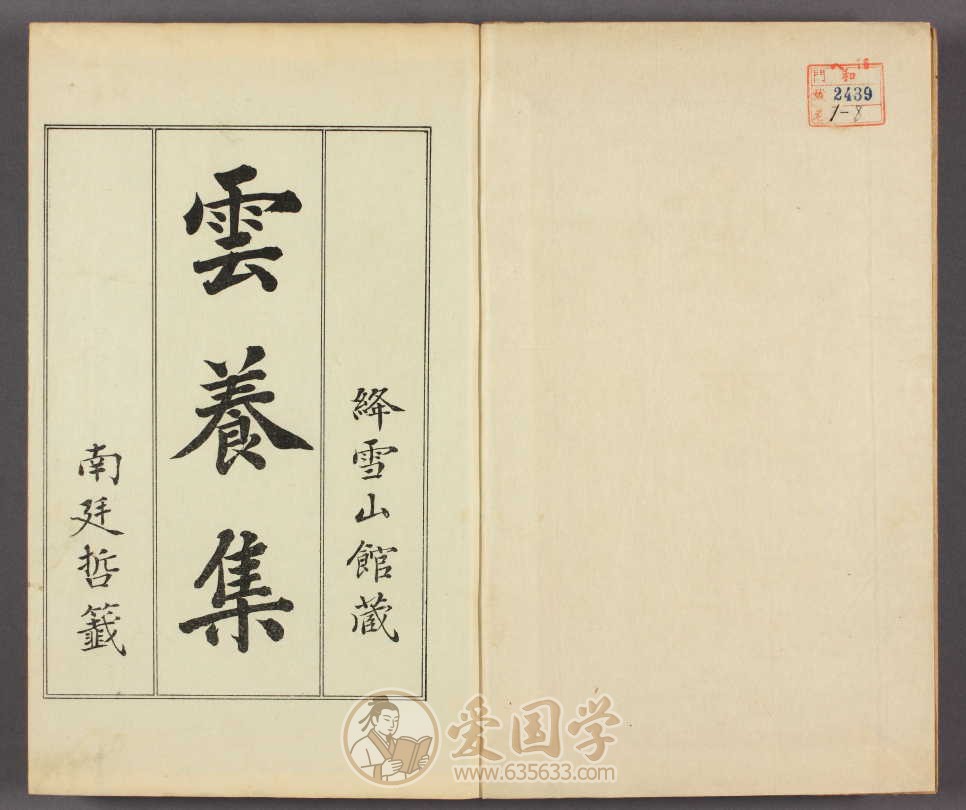 絳雪山館蔵
雲養集
南廷哲籤
門 和
2439
1-8
爱国学
www.635633.com